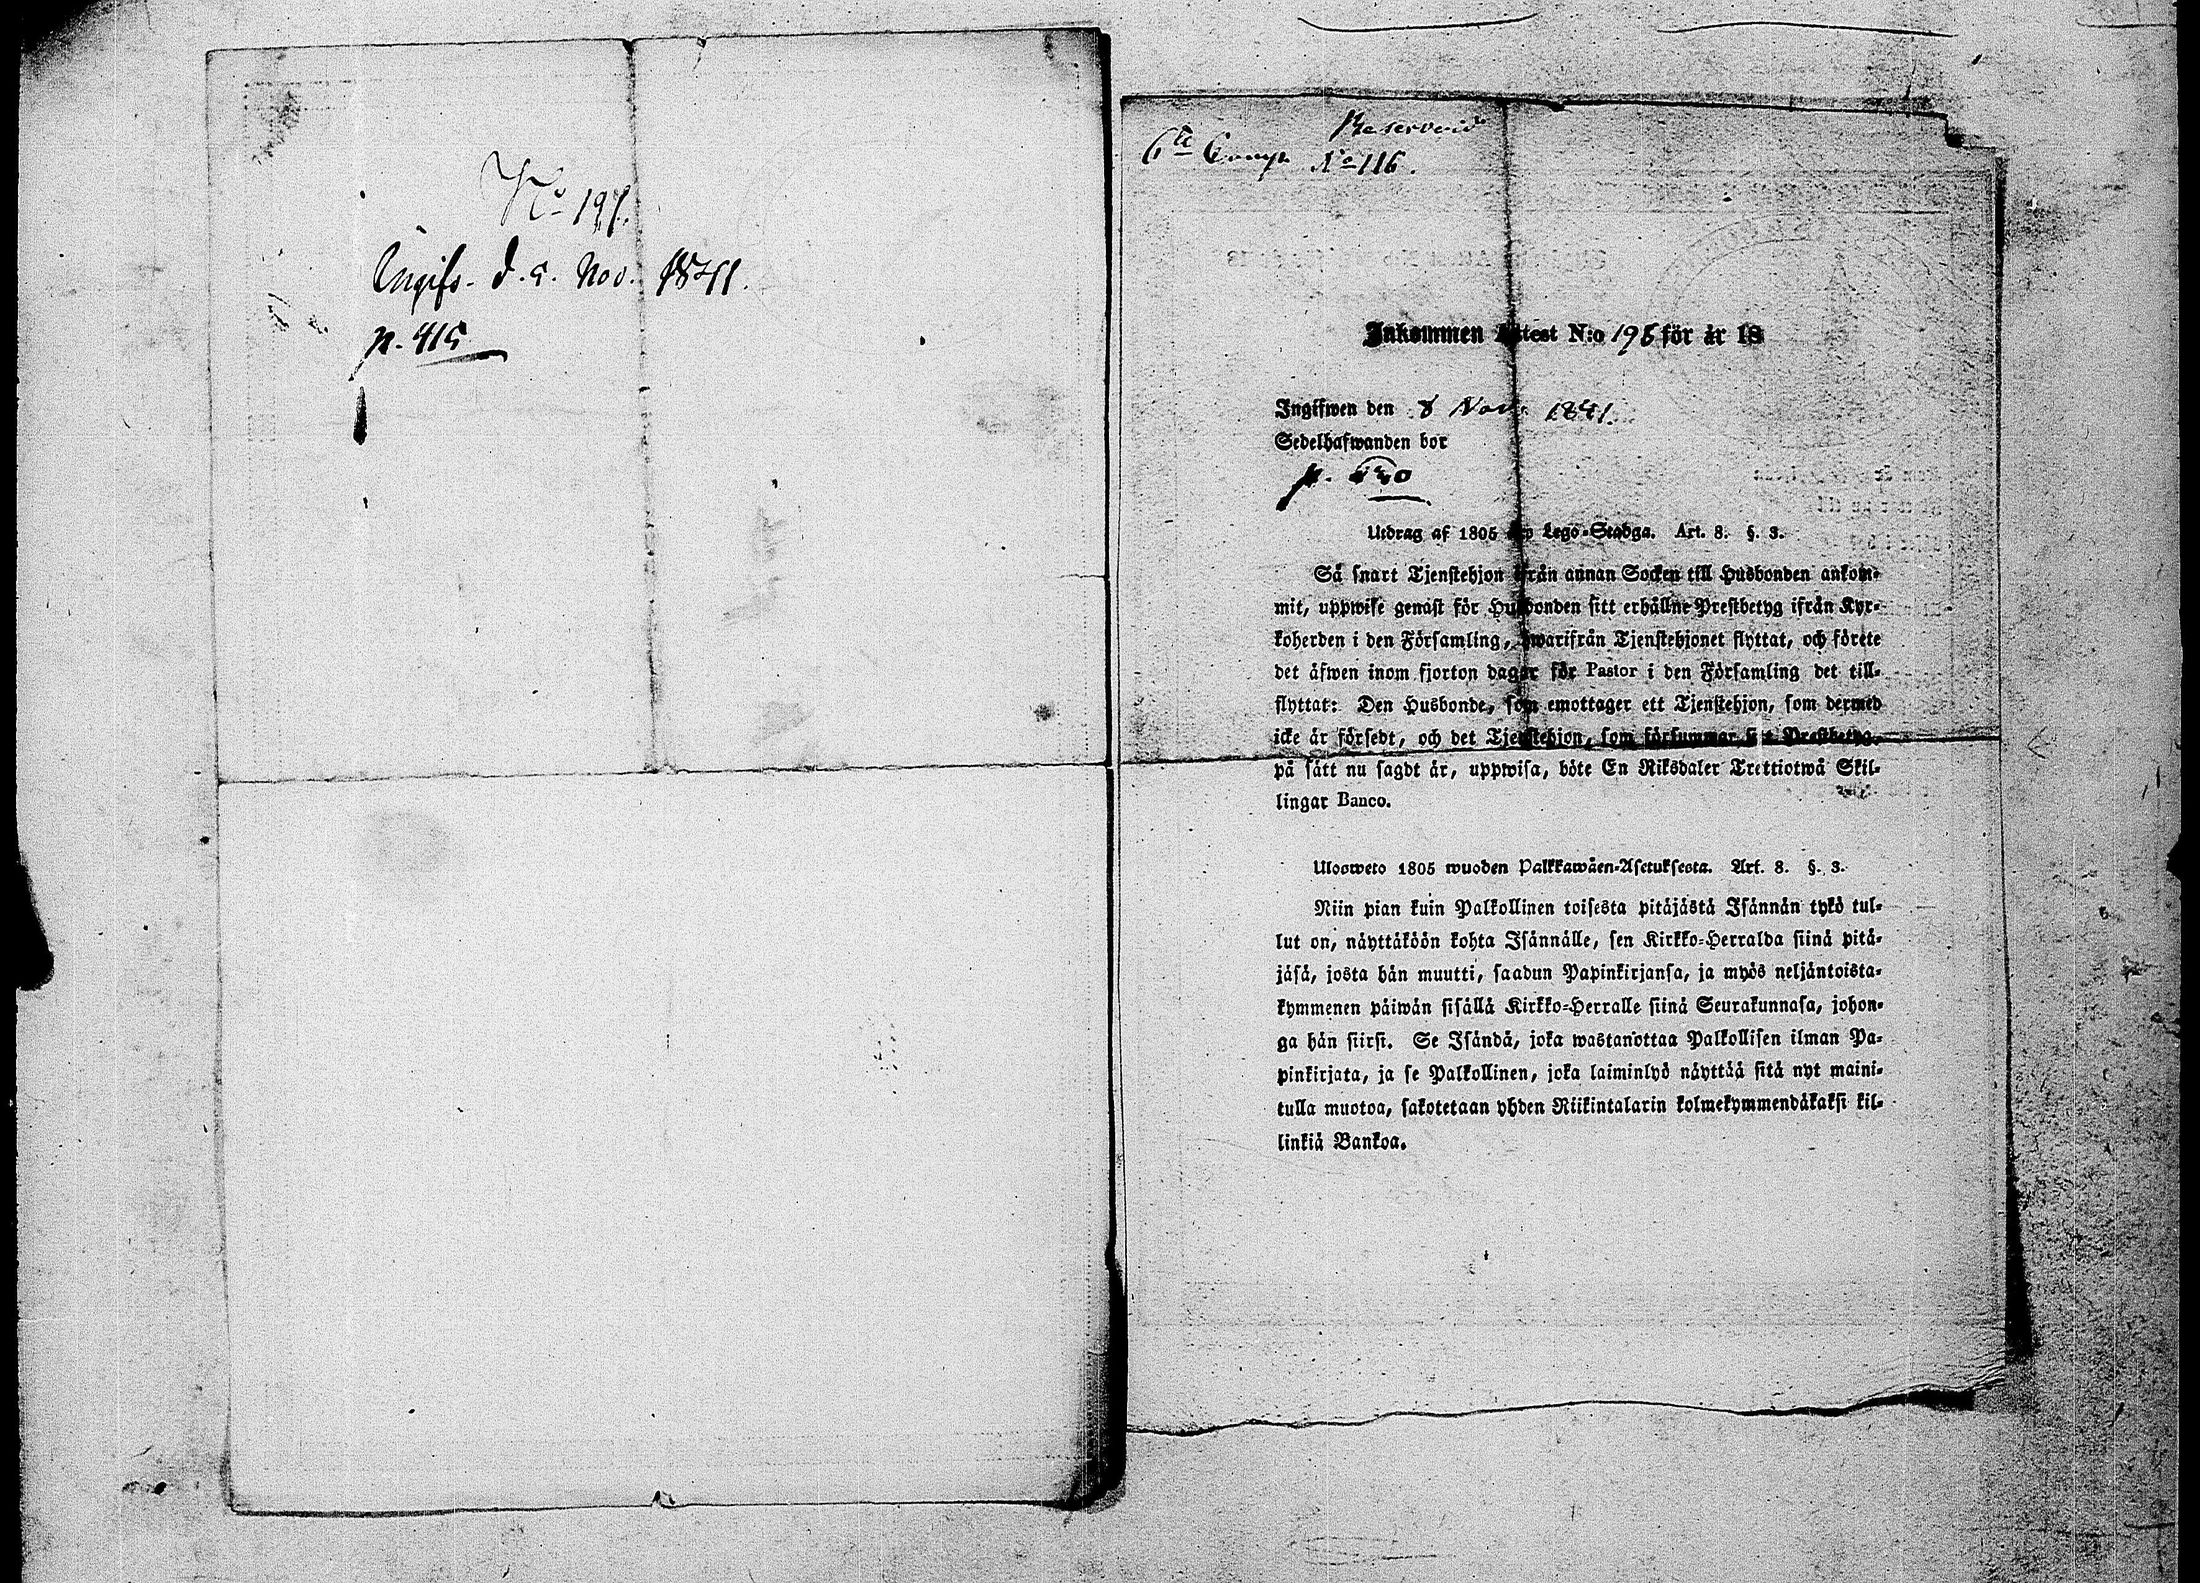 No 197.
Ingifs. d. 5. Nov. 1841.
p. 415
Reserverid
6te Comp. No 116.
Inkommen Attest N:o 198 för år 18
Ingifwen den 8 Nov. 1841.
Sedelhafwanden bor
p. 440
Utdrag af 1805 års Lego-Stadga. Art. 8. §. 3.
Så snart Tjenstehjon ifrån annan Socken till Husbonden ankom-
mit, uppwise genast för Husbonden sitt erhållne Prestbetyg ifrån Kyr-
koherden i den Församling, hwarifrån Tjenstehjonet flyttat, och förete
det äfwen inom fjorton dagar för Pastor i den Församling det till-
flyttat: Den Husbonde, som emottager ett Tjenstehjon, som dermed
icke är försedt, och det Tjenstehjon, som försummar sitt Prestbetyg,
på sätt nu sagdt är, uppwisa, böte En Riksdaler Trettiotwå Skil-
lingar Banco.
Uloosweto 1805 wuoden Palkkawäen-Asetuksesta. Art. 8. §. 3.
Niin pian kuin Palkollinen toisesta pitäjästä Isännän tykö tul-
lut on, näyttäköön kohta Isännälle, sen Kirkko-Herralda siinä pitä-
jäsä, josta hän muutti, saadun Papinkirjansa, ja myös neljäntoista-
kymmenen päiwän sisällä Kirkko-Herralle siinä Seurakunnasa, johon-
ga hän siirsi. Se Isändä, joka wastanottaa Palkollisen ilman Pa-
pinkirjata, ja se Palkollinen, joka laiminlyö näyttää sitä nyt maini-
tulla muotoa, sakotetaan yhden Riikintalarin kolmekymmendäkaksi kil-
linkiä Bankoa.